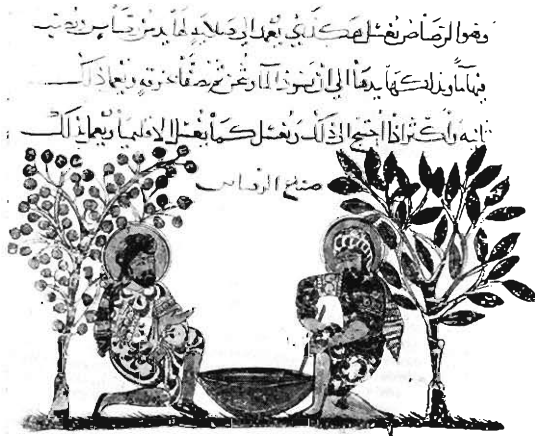 وهو الرصاص يغسل هكذى يعمد الى صلايه لها يد من رصاص ويصب
فيها ما ويدلك يدها الى ان يسود الما ويثخن ثم يصفا بخرقه ذلك
ثانيه واكثر اذا احتيج الى ذلك ويغسل كما يغسل الاقليميا ذلك
الرصاص